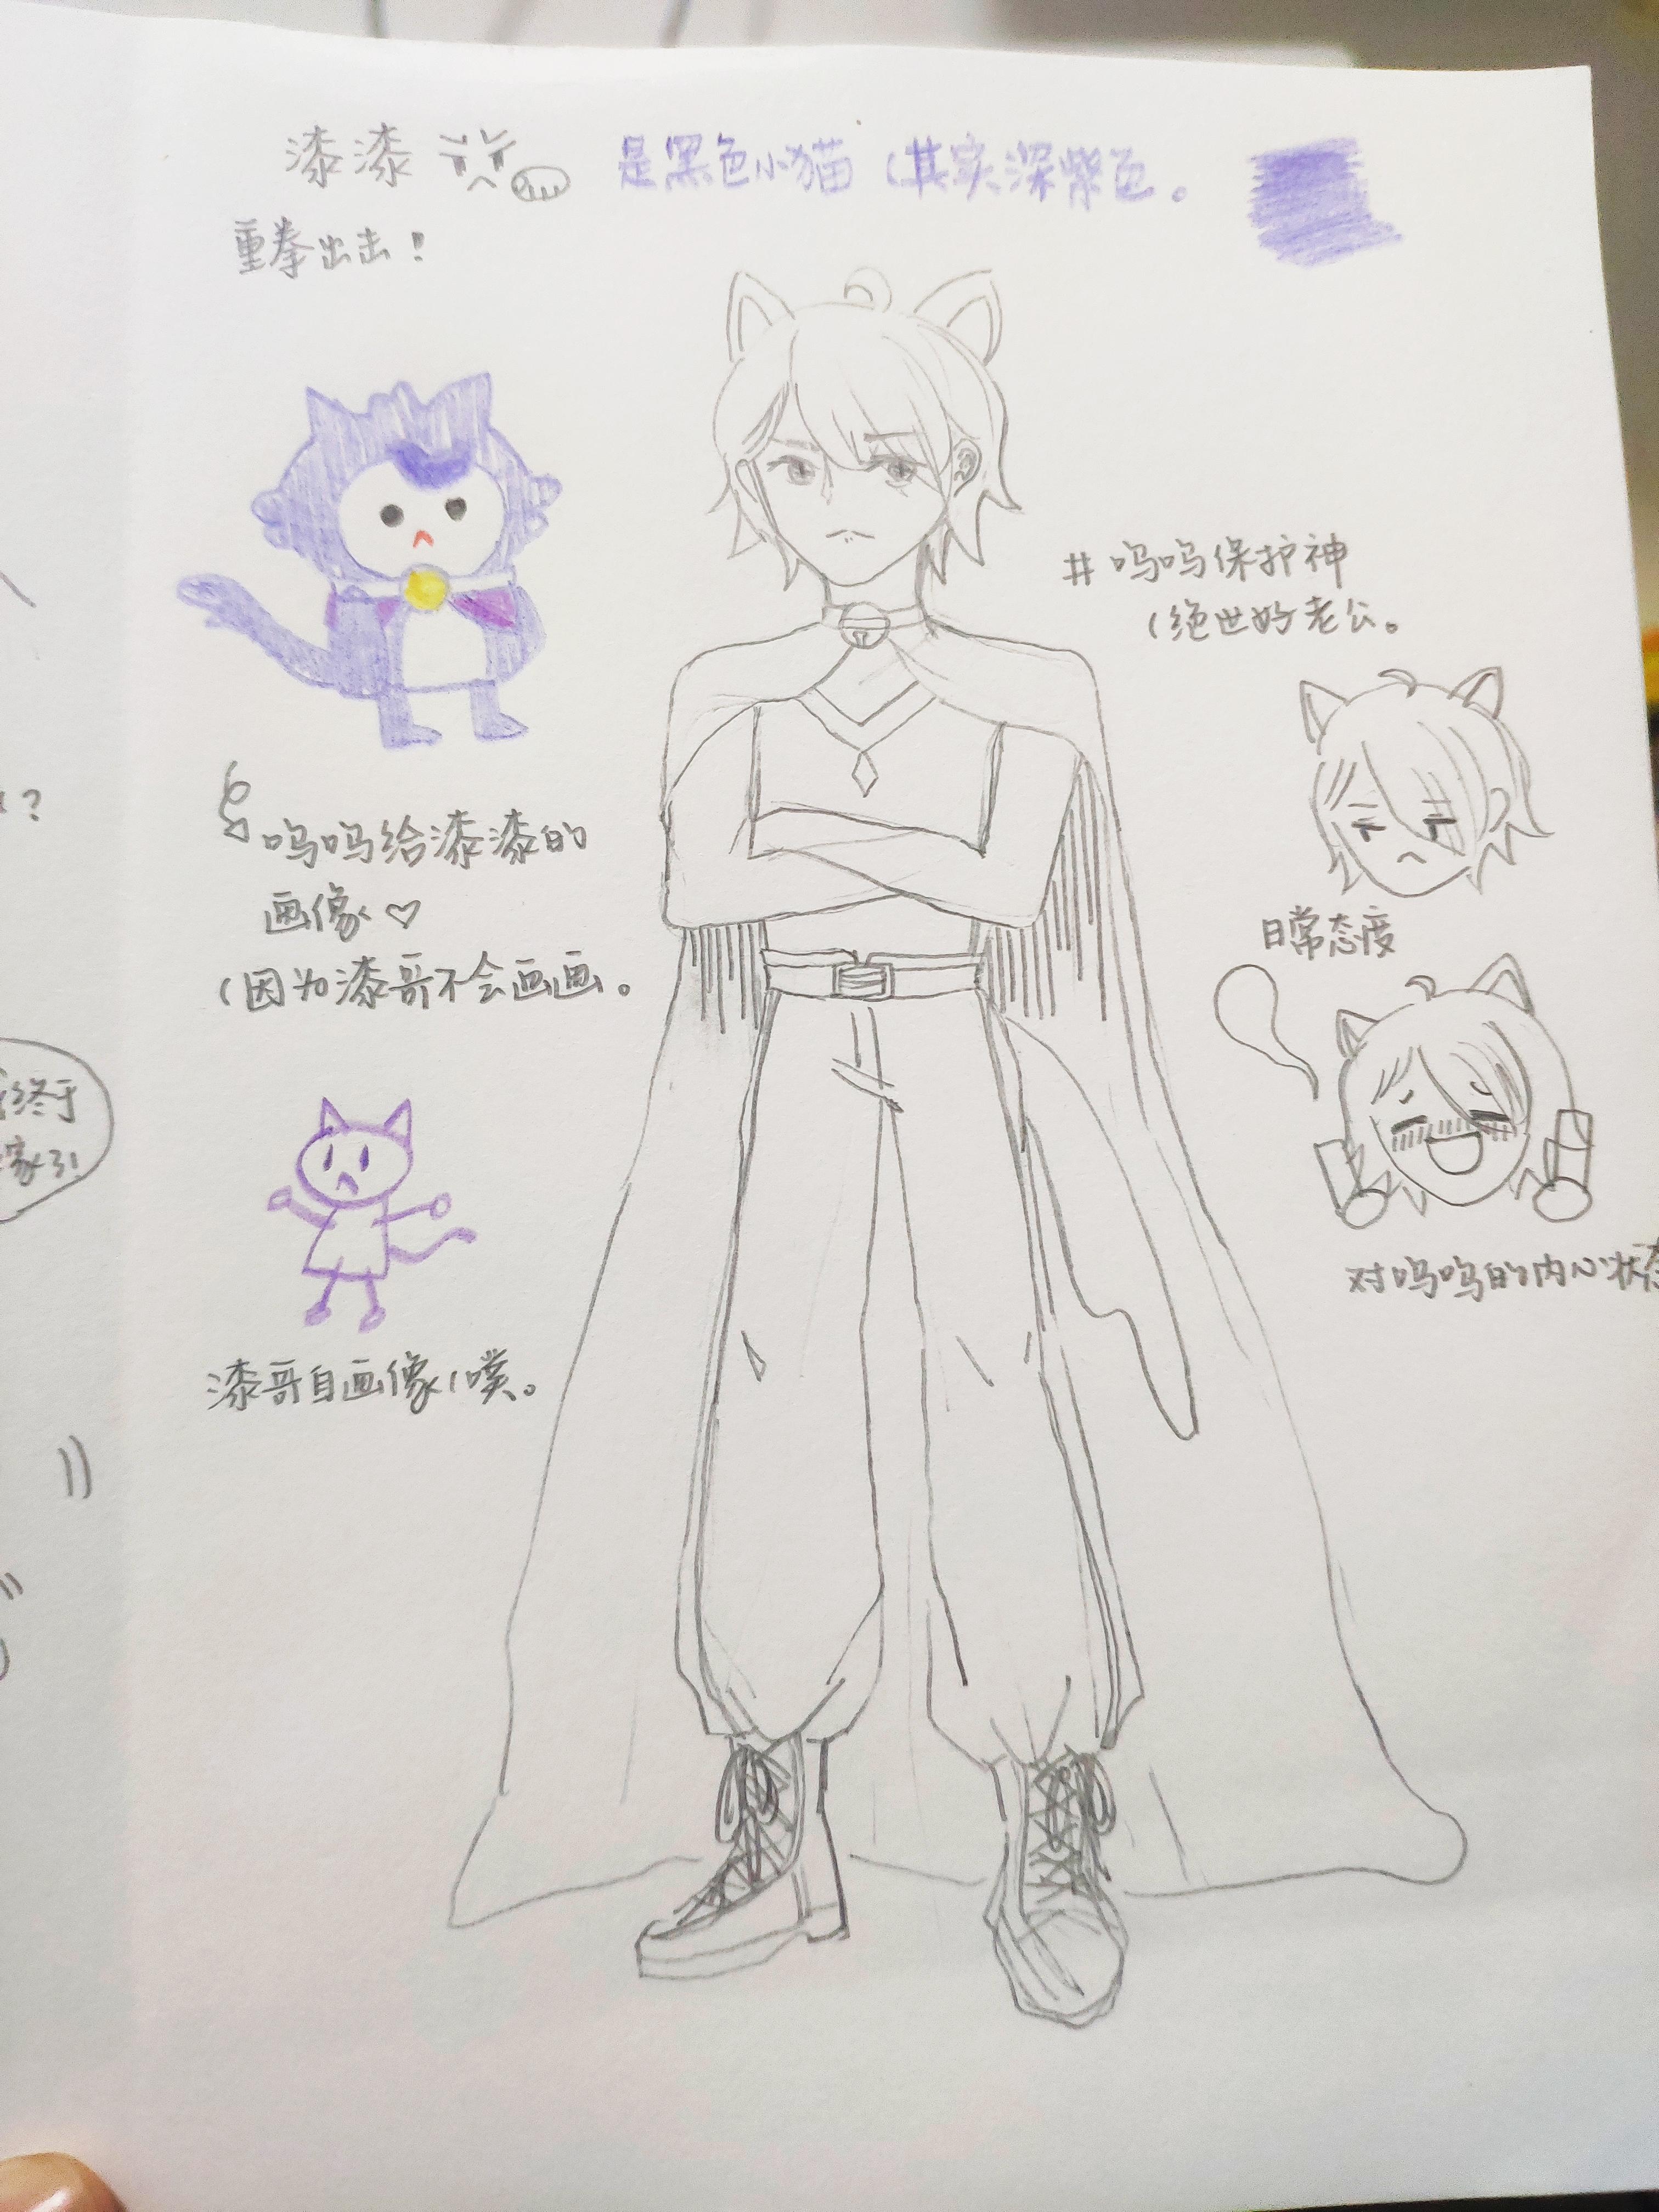 漆漆 是黑色小猫（其实深紫色。
重拳出击！
#呜呜保护神
（绝世好老公。
呜呜给漆漆的
画像♡
（因为漆哥不会画画。
日常态度
漆哥自画像（噗。
对呜呜的内心状态
?
终于